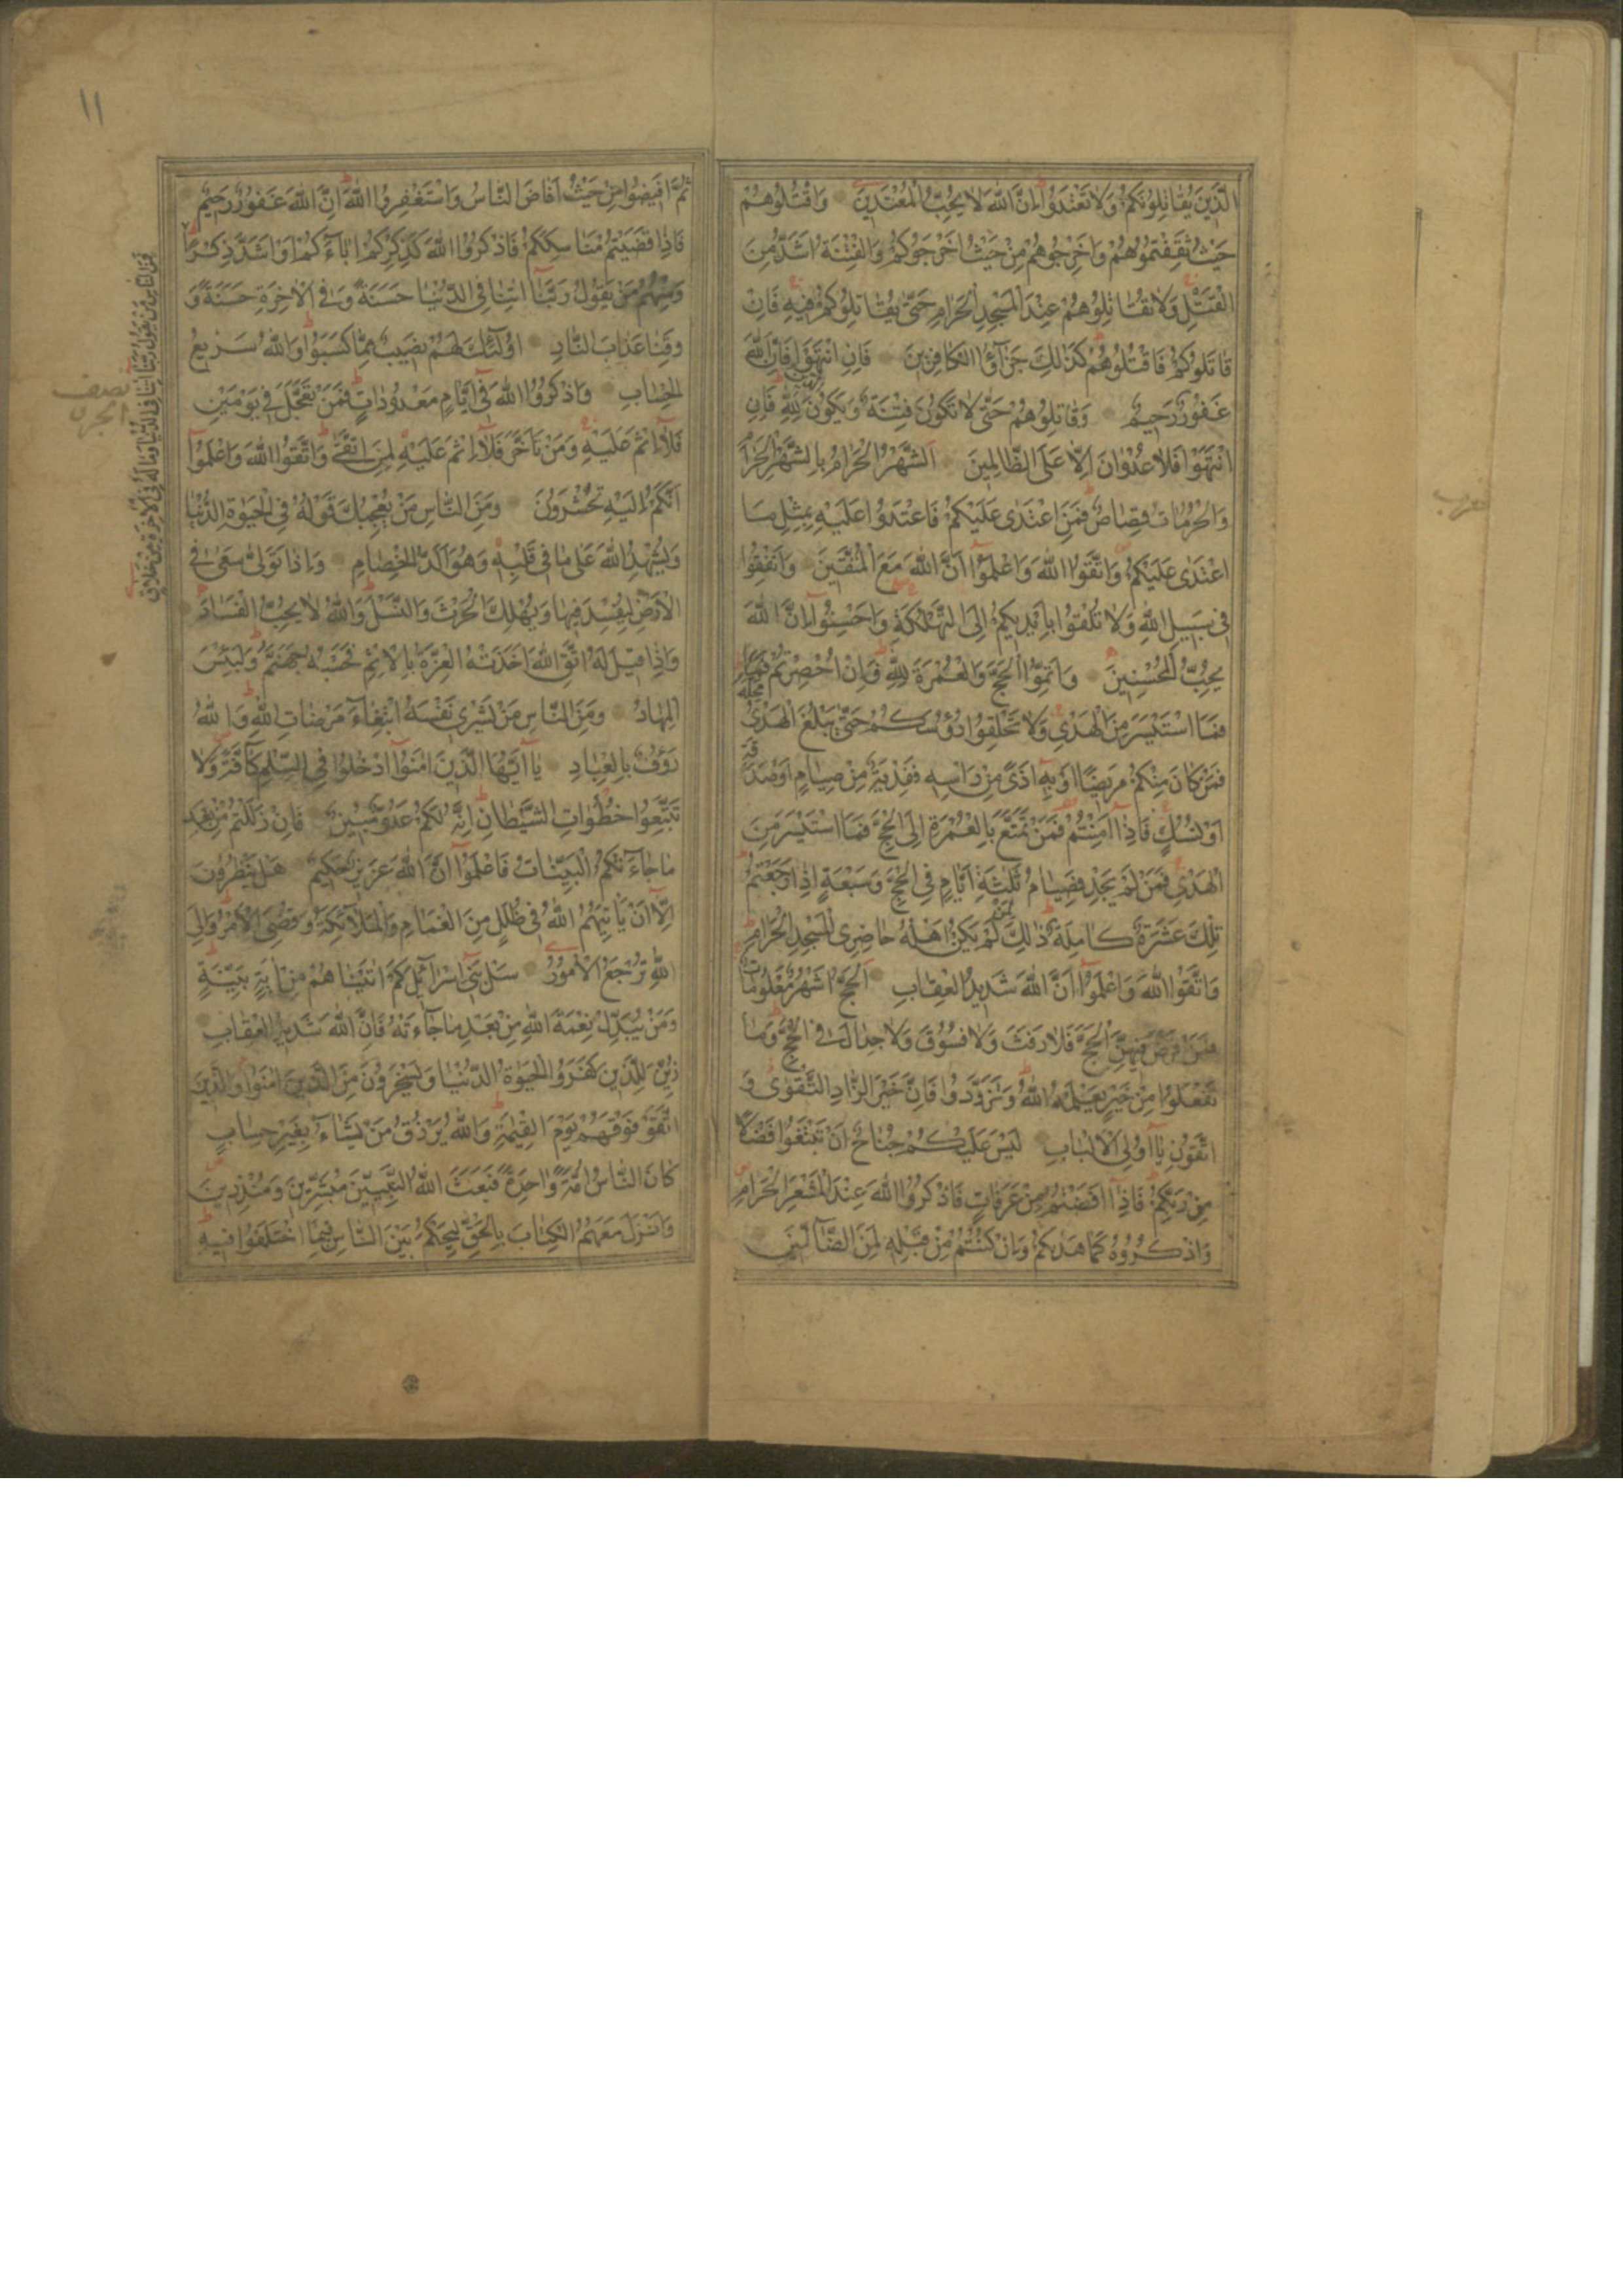 الَّذِينَ يُقَاتِلُونَكُمْ وَلَا تَعْتَدُوا اِنَّ اللّٰهَ لَا يُحِبُّ الْمُعْتَدِينَ وَاقْتُلُوهُمْ
حَيْثُ ثَقِفْتُمُوهُمْ وَاَخْرِجُوهُمْ مِنْ حَيْثُ اَخْرَجُوكُمْ وَالْفِتْنَةُ اَشَدُّ مِنَ
الْقَتْلِ وَلَا تُقَاتِلُوهُمْ عِنْدَ الْمَسْجِدِ الْحَرَامِ حَتّٰى يُقَاتِلُوكُمْ فِيهِ فَاِنْ
قَاتَلُوكُمْ فَاقْتُلُوهُمْ كَذٰلِكَ جَزَآؤُا الْكَافِرِينَ فَاِنِ انْتَهَوْا فَاِنَّ اللّٰهَ
غَفُورٌ رَحِيمٌ وَقَاتِلُوهُمْ حَتّٰى لَا تَكُونَ فِتْنَةٌ وَيَكُونَ الدِّينُ لِلّٰهِ فَاِنِ
انْتَهَوْا فَلَا عُدْوَانَ اِلَّا عَلَى الظَّالِمِينَ اَلشَّهْرُ الْحَرَامُ بِالشَّهْرِ الْحَرَامِ
وَالْحُرُمَاتُ قِصَاصٌ فَمَنِ اعْتَدٰى عَلَيْكُمْ فَاعْتَدُوا عَلَيْهِ بِمِثْلِ مَا
اعْتَدٰى عَلَيْكُمْ وَاتَّقُوا اللّٰهَ وَاعْلَمُوٓا اَنَّ اللّٰهَ مَعَ الْمُتَّقِينَ وَاَنْفِقُوا
فِى سَبِيلِ اللّٰهِ وَلَا تُلْقُوا بِاَيْدِيكُمْ اِلَى التَّهْلُكَةِ وَاَحْسِنُوٓا اِنَّ اللّٰهَ
يُحِبُّ الْمُحْسِنِينَ وَاَتِمُّوا الْحَجَّ وَالْعُمْرَةَ لِلّٰهِ فَاِنْ اُحْصِرْتُمْ
فَمَا اسْتَيْسَرَ مِنَ الْهَدْيِ وَلَا تَحْلِقُوا رُؤُسَكُمْ حَتّٰى يَبْلُغَ الْهَدْيُ مَحِلَّهُ
فَمَنْ كَانَ مِنْكُمْ مَرِيضًا اَوْ بِهٖٓ اَذًى مِنْ رَاْسِهِ فَفِدْيَةٌ مِنْ صِيَامٍ اَوْ صَدَقَةٍ
اَوْ نُسُكٍ فَاِذَٓا اَمِنْتُمْ فَمَنْ تَمَتَّعَ بِالْعُمْرَةِ اِلَى الْحَجِّ فَمَا اسْتَيْسَرَ مِنَ
الْهَدْيِ فَمَنْ لَمْ يَجِدْ فَصِيَامُ ثَلٰثَةِ اَيَّامٍ فِى الْحَجِّ وَسَبْعَةٍ اِذَا رَجَعْتُمْ
تِلْكَ عَشَرَةٌ كَامِلَةٌ ذٰلِكَ لِمَنْ لَمْ يَكُنْ اَهْلُهُ حَاضِرِى الْمَسْجِدِ الْحَرَامِ
وَاتَّقُوا اللّٰهَ وَاعْلَمُوٓا اَنَّ اللّٰهَ شَدِيدُ الْعِقَابِ اَلْحَجُّ اَشْهُرٌ مَعْلُومَاتٌ
فَمَنْ فَرَضَ فِيهِنَّ الْحَجَّ فَلَا رَفَثَ وَلَا فُسُوقَ وَلَا جِدَالَ فِى الْحَجِّ وَمَا
تَفْعَلُوا مِنْ خَيْرٍ يَعْلَمْهُ اللّٰهُ وَتَزَوَّدُوا فَاِنَّ خَيْرَ الزَّادِ التَّقْوٰى وَ
اتَّقُونِ يَٓا اُولِى الْاَلْبَابِ لَيْسَ عَلَيْكُمْ جُنَاحٌ اَنْ تَبْتَغُوا فَضْلًا
مِنْ رَبِّكُمْ فَاِذَٓا اَفَضْتُمْ مِنْ عَرَفَاتٍ فَاذْكُرُوا اللّٰهَ عِنْدَ الْمَشْعَرِ الْحَرَامِ
وَاذْكُرُوهُ كَمَا هَدٰيكُمْ وَاِنْ كُنْتُمْ مِنْ قَبْلِهِ لَمِنَ الضَّٓالِّينَ
١١
ثُمَّ اَفِيضُوا مِنْ حَيْثُ اَفَاضَ النَّاسُ وَاسْتَغْفِرُوا اللّٰهَ اِنَّ اللّٰهَ غَفُورٌ رَحِيمٌ
فَاِذَا قَضَيْتُمْ مَنَاسِكَكُمْ فَاذْكُرُوا اللّٰهَ كَذِكْرِكُمْ اٰبَٓاءَكُمْ اَوْ اَشَدَّ ذِكْرًا
وَمِنْهُمْ مَنْ يَقُولُ رَبَّنَٓا اٰتِنَا فِى الدُّنْيَا حَسَنَةً وَفِى الْاٰخِرَةِ حَسَنَةً وَ
وَقِنَا عَذَابَ النَّارِ اُولٰٓئِكَ لَهُمْ نَصِيبٌ مِمَّا كَسَبُوا وَاللّٰهُ سَرِيعُ
الْحِسَابِ وَاذْكُرُوا اللّٰهَ فِىٓ اَيَّامٍ مَعْدُودَاتٍ فَمَنْ تَعَجَّلَ فِى يَوْمَيْنِ
فَلَٓا اِثْمَ عَلَيْهِ وَمَنْ تَاَخَّرَ فَلَٓا اِثْمَ عَلَيْهِ لِمَنِ اتَّقٰى وَاتَّقُوا اللّٰهَ وَاعْلَمُوٓا
اَنَّكُمْ اِلَيْهِ تُحْشَرُونَ وَمِنَ النَّاسِ مَنْ يُعْجِبُكَ قَوْلُهُ فِى الْحَيٰوةِ الدُّنْيَا
وَيُشْهِدُ اللّٰهَ عَلٰى مَا فِى قَلْبِهِ وَهُوَ اَلَدُّ الْخِصَامِ وَاِذَا تَوَلّٰى سَعٰى فِى
الْاَرْضِ لِيُفْسِدَ فِيهَا وَيُهْلِكَ الْحَرْثَ وَالنَّسْلَ وَاللّٰهُ لَا يُحِبُّ الْفَسَادَ
وَاِذَا قِيلَ لَهُ اتَّقِ اللّٰهَ اَخَذَتْهُ الْعِزَّةُ بِالْاِثْمِ فَحَسْبُهُ جَهَنَّمُ وَلَبِئْسَ
الْمِهَادُ وَمِنَ النَّاسِ مَنْ يَشْرِى نَفْسَهُ ابْتِغَٓاءَ مَرْضَاتِ اللّٰهِ وَاللّٰهُ
رَؤُفٌ بِالْعِبَادِ يَٓا اَيُّهَا الَّذِينَ اٰمَنُوا ادْخُلُوا فِى السِّلْمِ كَٓافَّةً وَلَا
تَتَّبِعُوا خُطُوَاتِ الشَّيْطَانِ اِنَّهُ لَكُمْ عَدُوٌّ مُبِينٌ فَاِنْ زَلَلْتُمْ مِنْ بَعْدِ
مَا جَٓاءَتْكُمُ الْبَيِّنَاتُ فَاعْلَمُوٓا اَنَّ اللّٰهَ عَزِيزٌ حَكِيمٌ هَلْ يَنْظُرُونَ
اِلَّٓا اَنْ يَاْتِيَهُمُ اللّٰهُ فِى ظُلَلٍ مِنَ الْغَمَامِ وَالْمَلٰٓائِكَةُ وَقُضِىَ الْاَمْرُ وَاِلَى
اللّٰهِ تُرْجَعُ الْاُمُورُ سَلْ بَنِىٓ اِسْرَٓائِيلَ كَمْ اٰتَيْنَاهُمْ مِنْ اٰيَةٍ بَيِّنَةٍ
وَمَنْ يُبَدِّلْ نِعْمَةَ اللّٰهِ مِنْ بَعْدِ مَا جَٓاءَتْهُ فَاِنَّ اللّٰهَ شَدِيدُ الْعِقَابِ
زُيِّنَ لِلَّذِينَ كَفَرُوا الْحَيٰوةُ الدُّنْيَا وَيَسْخَرُونَ مِنَ الَّذِينَ اٰمَنُوا وَالَّذِينَ
اتَّقَوْا فَوْقَهُمْ يَوْمَ الْقِيٰمَةِ وَاللّٰهُ يَرْزُقُ مَنْ يَشَٓاءُ بِغَيْرِ حِسَابٍ
كَانَ النَّاسُ اُمَّةً وَاحِدَةً فَبَعَثَ اللّٰهُ النَّبِيِّينَ مُبَشِّرِينَ وَمُنْذِرِينَ
وَاَنْزَلَ مَعَهُمُ الْكِتَابَ بِالْحَقِّ لِيَحْكُمَ بَيْنَ النَّاسِ فِيمَا اخْتَلَفُوا فِيهِ
فَمِنَ النَّاسِ مَنْ يَقُولُ رَبَّنَٓا اٰتِنَا فِى الدُّنْيَا وَمَا لَهُ فِى الْاٰخِرَةِ مِنْ خَلَاقٍ
نصف
الجزء